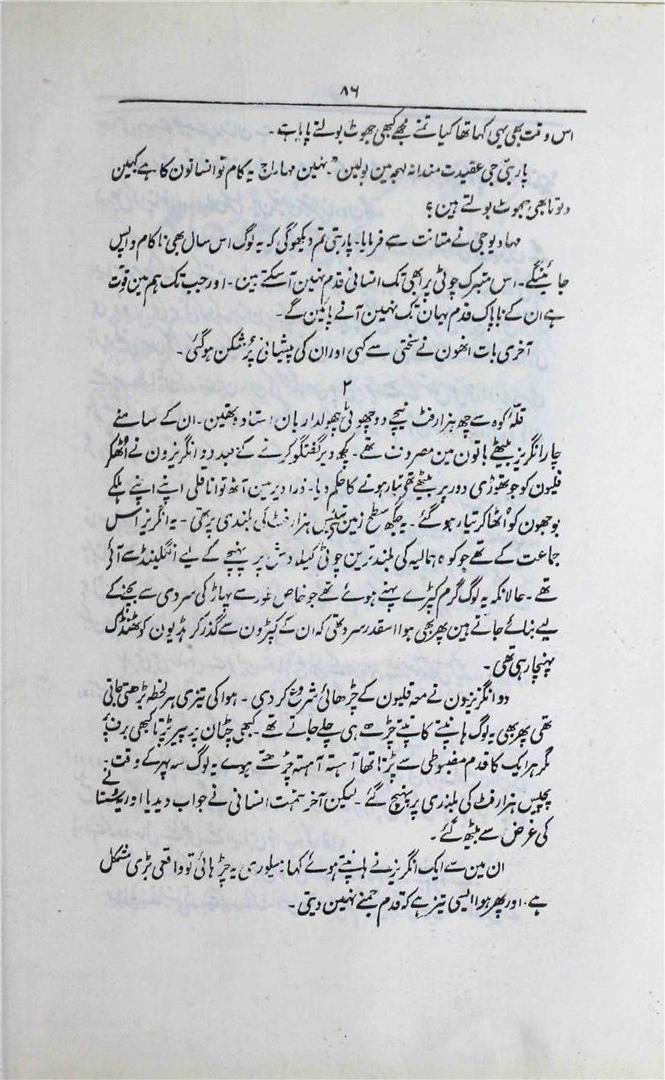 ۸۶
اس وقت بھی یہی کہا تھا کیا تمنے مجھے کبھی جھوٹ بولتے پایا ہے۔
پاربتی جی عقیدت مندانہ لہجہ مین بولین "۔ نہین مہاراج یہ کام تو انسانون کا ہے کہین
دیوتا بھی جھوٹ بولتے ہین؟
مہادیو جی نے متانت سے فرمایا۔ پاربتی تم دیکھوگی کہ یہ لوگ اس سال بھی ناکام واپس
جائینگے۔ اس متبرک چوٹی پر ابھی تک انسانی قدم نہین آسکتے ہین۔ اور جب تک ہم مین قوت
ہے ان کے ناپاک قدم یہان تک نہین آنے پائین گے۔
آخری بات انھون نے سختی سے کہی اور ان کی پیشانی پُر شکن ہوگئی۔
۲
قلہ کوہ سے چھ ہزار فٹ نیچے دو چھوٹی چھولداریان استادہ تھین۔ ان کے سامنے
چار انگریز بیٹھے باتون مین مصروف تھے۔ کچھ دیر گفتگو کرنے کے بعد دو انگریزون نے اُٹھکر
قلیون کو جو تھوڑی دور پر بیٹھے تھے تیار ہونے کا حکم دیا۔ ذرا دیر مین آٹھ توانا قلی اپنے اپنے ہلکے
بوجھون کو اٹھا کر تیار ہوگئے۔ یہ جگہ سطح زمین سے تیئیس ہزار فٹ کی بلندی پر تھی۔ یہ انگریز اس
جماعت کے تھے جو کوہ ہمالیہ کی بلند ترین چوٹی کیلاش پر پہنچنے کے لیے انگلینڈ سے آئی
تھے۔ حالانکہ یہ لوگ گرم کپڑے پہنے ہوئے تھے جو خاص طور سے پہاڑ کی سردی سے بچنے کے
لیے بنائے جاتے ہین پھر بھی ہوا اسقدر سرد تھی کہ ان کے کپڑون سے گذر کر ہڈیون کو ٹھنڈک
پہنچا رہی تھی۔
دو انگریزون نے معہ قلیون کے چڑھائی شروع کر دی۔ ہوا کی تیزی ہر لحظہ بڑھتی جاتی
تھی پھر بھی یہ لوگ ہانپتے کانپتے چڑھے ہی چلے جاتے تھے۔ کبھی چٹان پر پیر پڑتا کبھی برف پر
مگر ہر ایک کا قدم مضبوطی سے پڑتا تھا آہستہ آہستہ چڑھتے ہوے یہ لوگ سہ پہر کے وقت
پچیس ہزار فٹ کی بلندری پر پہنچ گئے۔ لیکن آخر ہمت انسانی نے جواب دیدیا اور سستانے
کی غرض سے بیٹھ گئے۔
ان مین سے ایک انگریز نے ہانپتے ہوئے کہا۔ میلوری یہ چڑہائی تو واقعی بڑی مشکل
ہے۔ اور پھر ہوا ایسی تیز ہے کہ قدم جمنے نہین دیتی۔